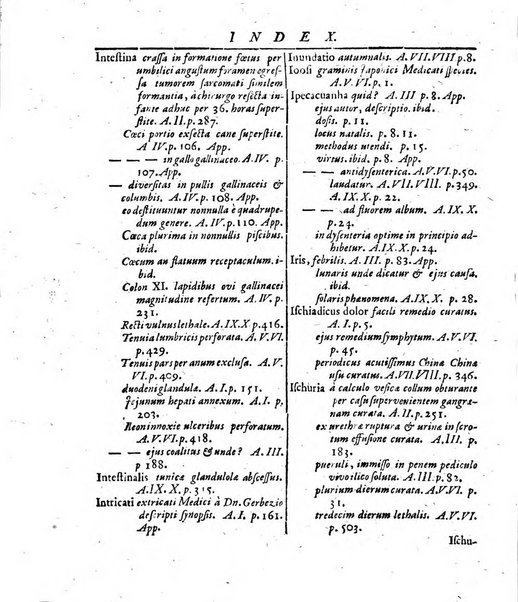 INDEX.
Intestina crassa in formatione fœtus per
umbelici angustum foramen egres-
sa tumorem sarcomati similem
formantia, à chirurgo resecta in-
fante adhuc per 36. horas super-
stite. A. II. p. 287.
Cœci portio exsecta cane superstite.
A IV. p. 106. App.
— — — in gallo gallinaceo. A. IV. p.
107. App.
— diversitas in pullis gallinaceis &
columbis. A. IV. p. 108. App.
eo destituuntur nonnulla è quadrupe-
dum genere. A. IV. p. 109. App.
Cœca plurima in nonnullis piscibus.
ibid.
Cœcum an flatuum receptaculum. i-
bid.
Colon XI. lapidibus ovi gallinacei
magnitudine refertum. A. IV. p.
231.
Recti vulnus lethale. A. IX. X p. 416.
Tenuia lumbricis perforata. A. V. VI.
p. 429.
Tenuis pars per anum exclusa. A. V.
VI. p. 409.
duodeni glandulæ. A. I. p. 151.
Jejunum hepati annexum. A. I. p.
203.
Ileon innoxie ulceribus perforatum.
A. V. VI. p. 418.
— — ejus coalitus & unde? A. III.
p 188.
Intestinalis tunicæ glandulolæ abscessus.
A. IX. X. p. 315.
Intricati extricati Medici à Dn. Gerbezio
descripti synopsis. A. I. p. 161.
App.
Inundatio autumnalis. A. VII. VIII p. 8.
Ioosi graminis Japonici Medicati species.
A. VI. p. 1.
Ipecacuanha quid? A. III p. 8. App.
ejus autor, descriptio. ibid.
dosis. p. 11.
locus natalis. p. 8. 11.
methodus utendi. p. 15.
virtus. ibid. p. 8.
— — — antidysenterica. A. V. VI. p. 50.
laudatur. A. VII. VIII. p. 349.
A. IX. X.
— — — ad fluorem album. A. IX. X.
p. 24.
in dysenteria optime in principio ad-
hibetur. A. IX. X. p. 24.
Iris, febrilis. A. III. p. 83. App.
lunaris unde dicatur & ejus causa.
ibid.
solaris phænomena. A. IX. X p. 28.
Ischiadicus dolor facili remedio curatus.
A. I. p. 5.
ejus remedium symphytum. A. V. VI.
p. 45.
periodicus acutissimus China Chinæ
usu curatus. A. V. VI. p. 346.
Ischuria à calculo vesicæ collum obturante
per casu supervenientem gangræ-
nam curata. A. II. p. 251.
ex urethræ ruptura & urinæ in scro-
tum effusione curata. A. III. p.
183.
pueruli, immisso in penem pediculo
vivo itico soluta. A. III. p. 82.
plurium dierum curata. A. V. VI. p.
31.
tredecim dierum lethalis. A. V. VI.
p. 503.
Ischu-